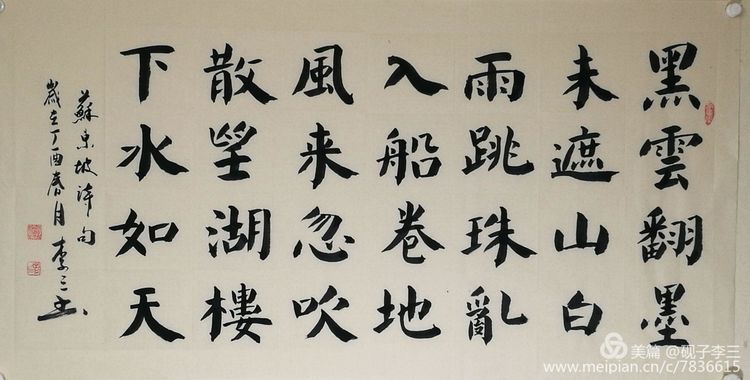 黑雲翻墨
未遮山白
雨跳珠亂
入船卷地
風来忽吹
散望湖樓
下水如天
蘇东坡诗句
歲在丁酉春月 李三书
美篇 @砚子李三
www.meipian.cn/c/7836615